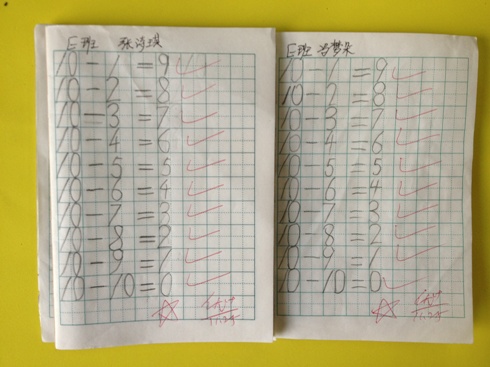 E班 张诗琪
10-1=9
10-2=8
10-3=7
10-4=6
10-5=5
10-6=4
10-7=3
10-8=2
10-9=1
10-10=0
11.25
E班 冯梦朵
10-1=9
10-2=8
10-3=7
10-4=6
10-5=5
10-6=4
10-7=3
10-8=2
10-9=1
10-10=0
11.25